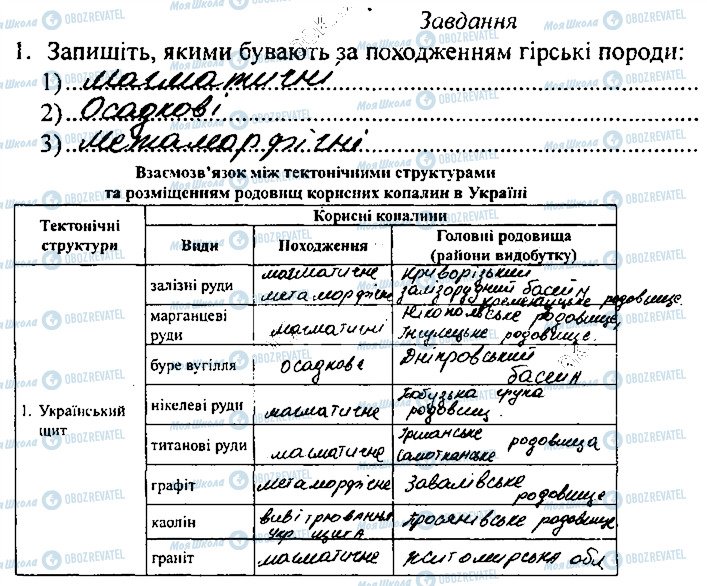 Завдання
1. Запишіть, якими бувають за походженням гірські породи:
1) магматичні
2) Осадкові
3) метаморфічні
Взаємозв'язок між тектонічними структурами
та розміщенням родовищ корисних копалин в Україні
Тектонічні структури
Корисні копалини
Види
Походження
Головні родовища (райони видобутку)
1. Український щит
залізні руди
магматичне
метаморфічне
Криворізький
залізорудний басейн
Кременчуцьке родовище
марганцеві руди
магматичні
Нікопольське родовище,
Інгулецьке родовище.
буре вугілля
осадкове
Дніпровський
басейн
нікелеві руди
магматичне
Побузька група
родовищ
титанові руди
магматичне
Іршанське
Самотканське родовища
графіт
метаморфічне
Завалівське
родовище
каолін
вивітрювання
укр. щита
Просянівське родовище
граніт
магматичне
Житомирська обл
Моя Школа OBOZREVATEL